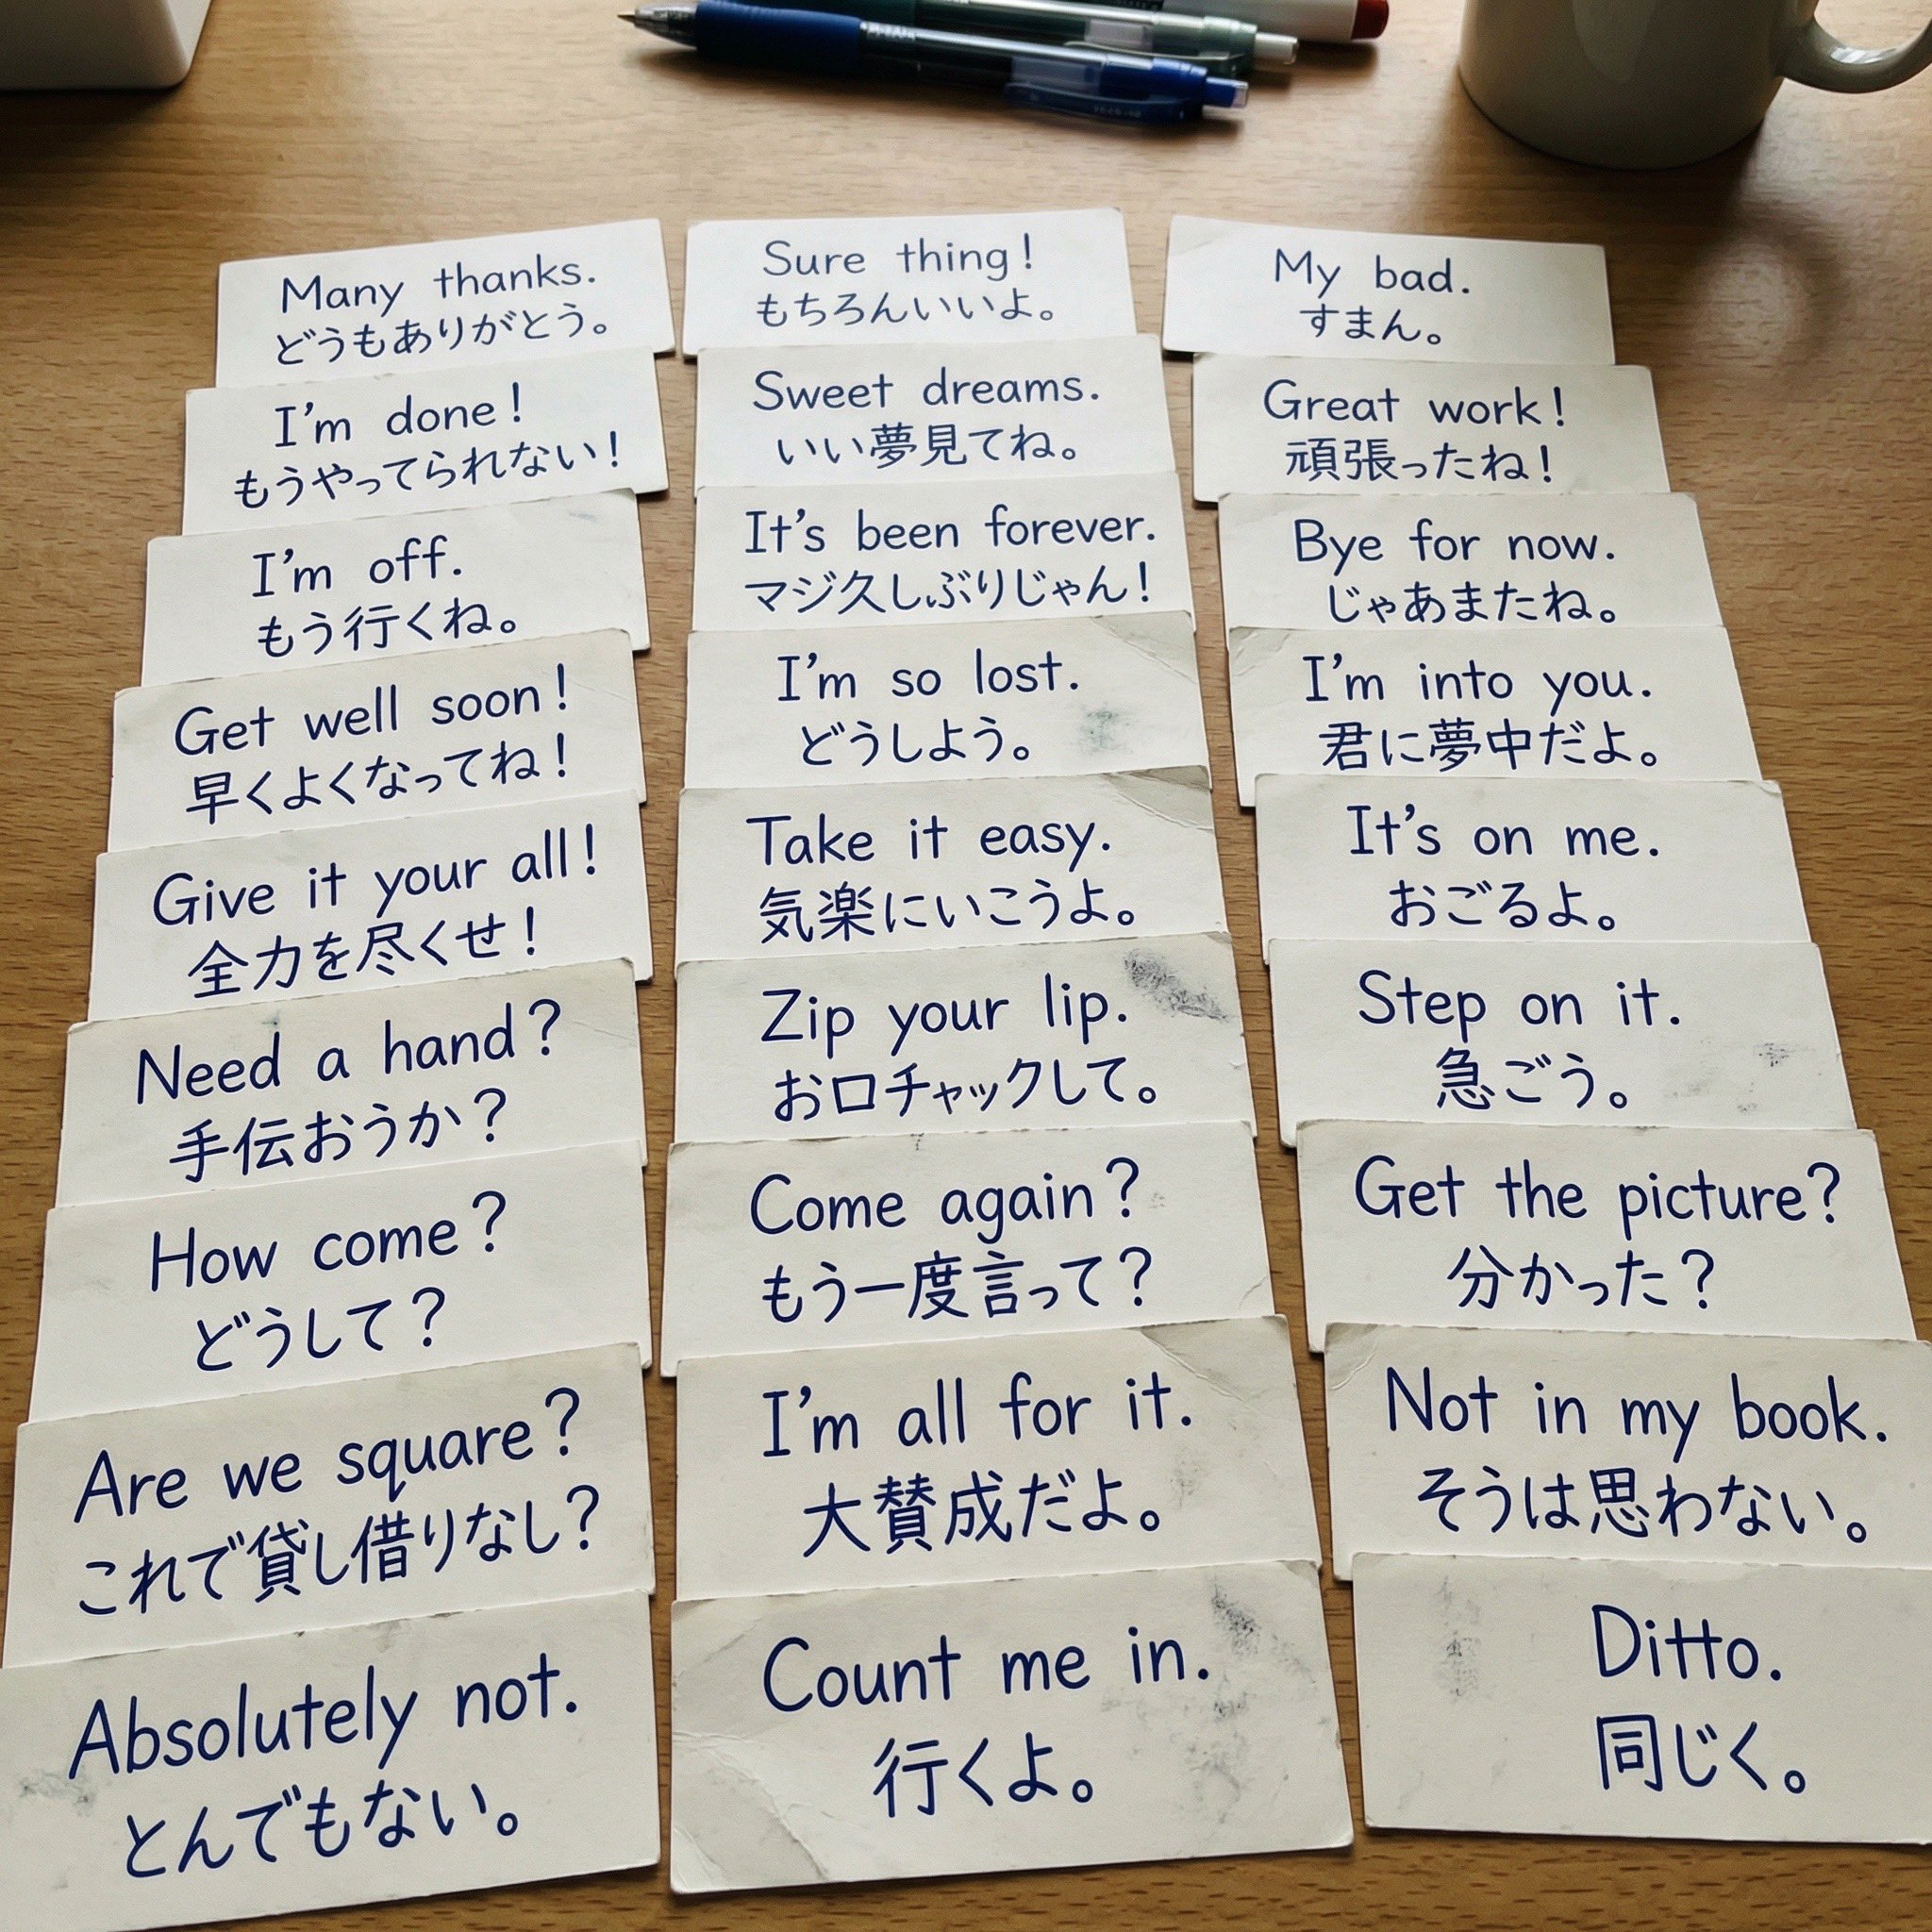 Many thanks.
どうもありがとう。
I'm done!
もうやってられない!
I'm off.
もう行くね。
Get well soon!
早くよくなってね!
Give it your all!
全力を尽くせ!
Need a hand?
手伝おうか?
How come?
どうして?
Are we square?
これで貸し借りなし?
Absolutely not.
とんでもない。
Sure thing!
もちろんいいよ。
Sweet dreams.
いい夢見てね。
It's been forever.
マジ久しぶりじゃん!
I'm so lost.
どうしよう。
Take it easy.
気楽にいこうよ。
Zip your lip.
お口チャックして。
Come again?
もう一度言って?
I'm all for it.
大賛成だよ。
Count me in.
行くよ。
My bad.
すまん。
Great work!
頑張ったね!
Bye for now.
じゃあまたね。
I'm into you.
君に夢中だよ。
It's on me.
おごるよ。
Step on it.
急ごう。
Get the picture?
分かった?
Not in my book.
そうは思わない。
Ditto.
同じく。